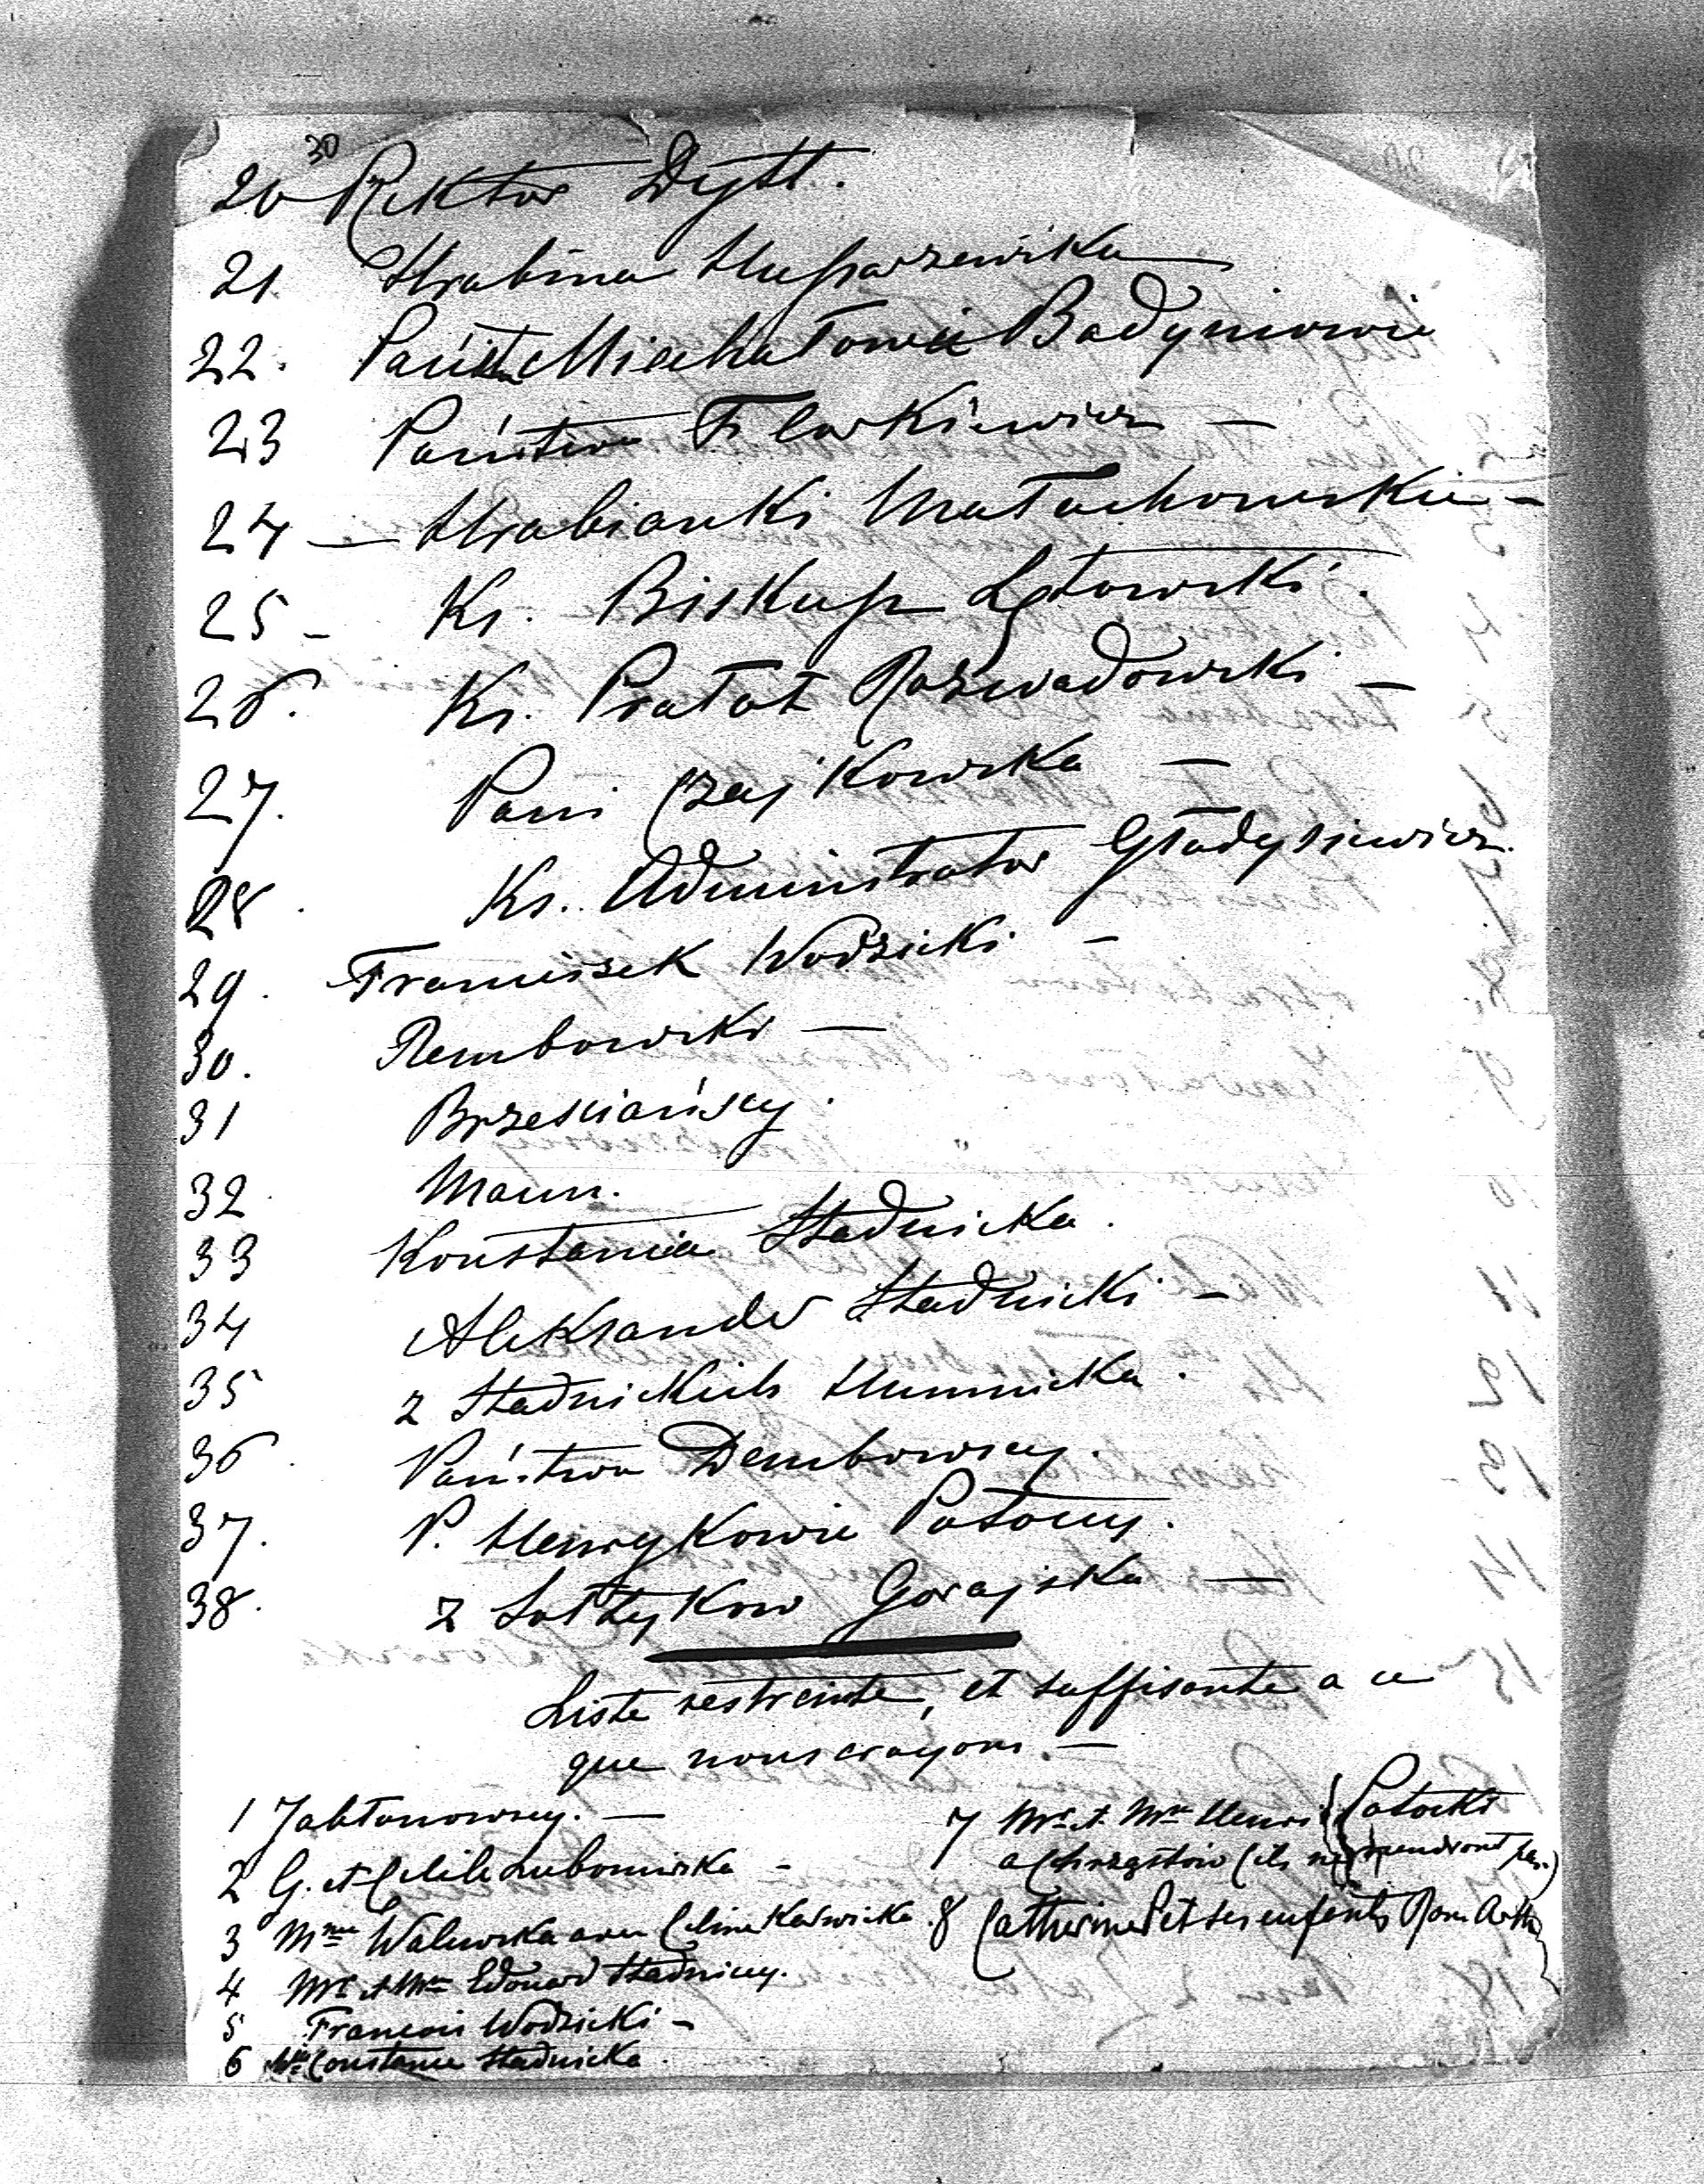 30
20 Rektor Dytt.
21 Hrabina Huparzewska
22. Państwo Michałowie Badyniowie
23 Państwo Florkiewicz —
24 — Hrabianki Małachowskie —
25 - Ks. Biskup Łętowski.
26. Ks. Prałat Rozwadowski —
27. Pani Czajkowska —
28. Ks. Administrator Gładysiewicz.
29. Franciszek Wodzicki —
30. Rembowski —
31 Brzesciańscy.
32 Mann.
33 Konstancia Stadnicka.
34 Aleksander Stadnicki —
35 z Stadnickich Humnicka.
36. Państwo Dembowscy.
37. P. Henrykowie Potoccy.
38. z Sołtyków Gorajska —
Liste restreinte, et suffisante a ce
que nous croyons. —
1 Jabłonowscy. —
2 G. et Cécile Lubomirska —
3 Mme Walewska avec Celine Karwicka.
4 Mr et Mme Edouard Stadniccy.
5 Francois Wodzicki —
6 Constance Stadnicka.
7 Mr. et. Mme Henri Potocki
a Chrząstów (ils ne viendront pas.)
8 Catherine P et ses enfants Rom. Arth